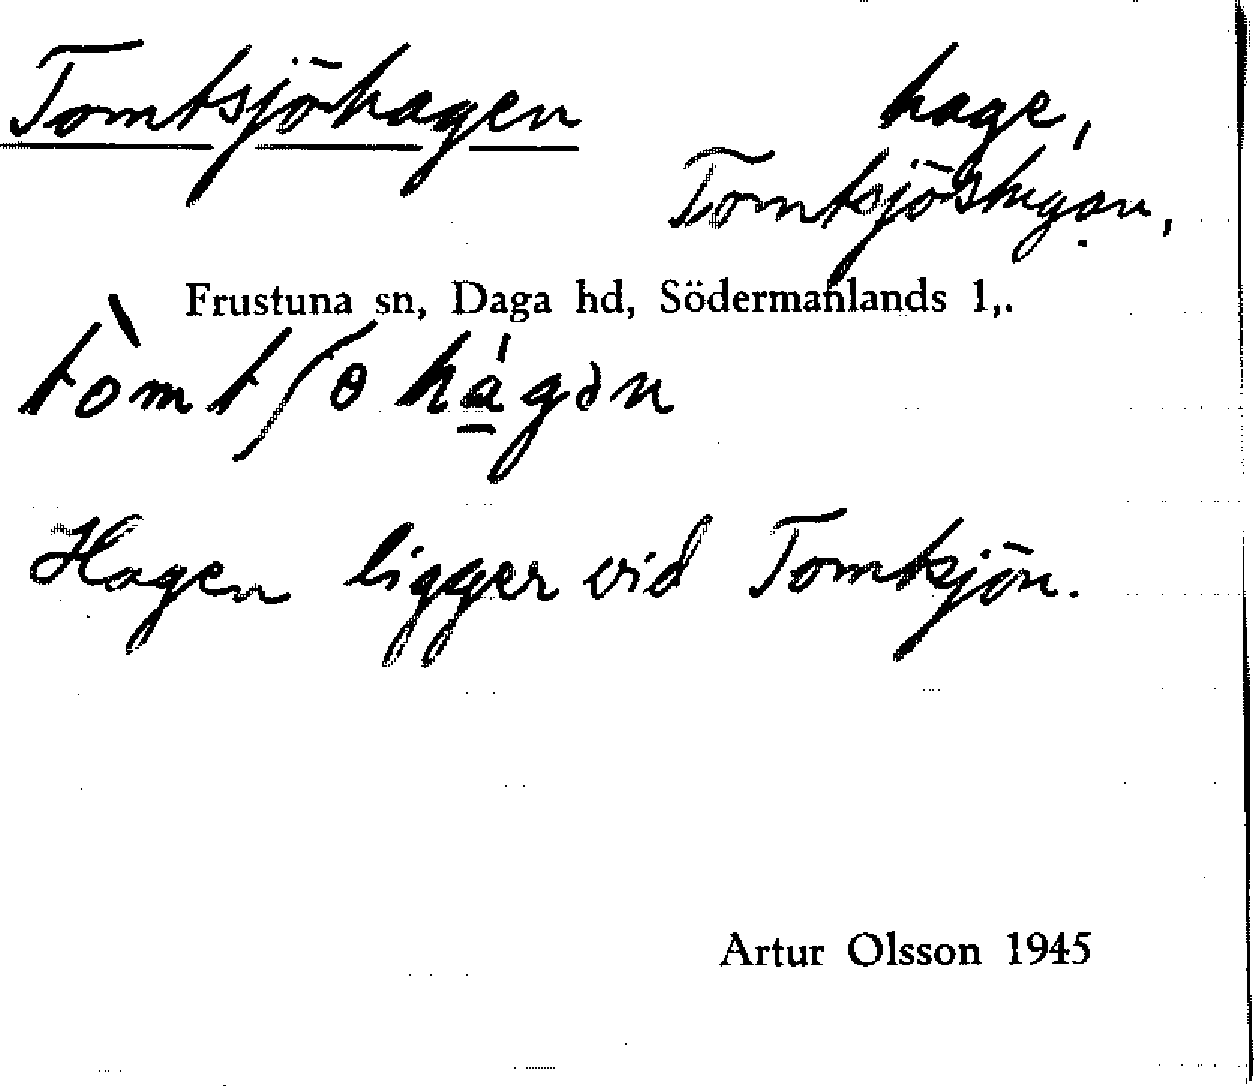 Tomtsjöhagen hage,
Tomtsjöstugan,
Frustuna sn, Daga hd, Södermanlands l,.
tòmtʃɵhá̱gən
Hagen ligger vid Tomtsjön.
Artur Olsson 1945